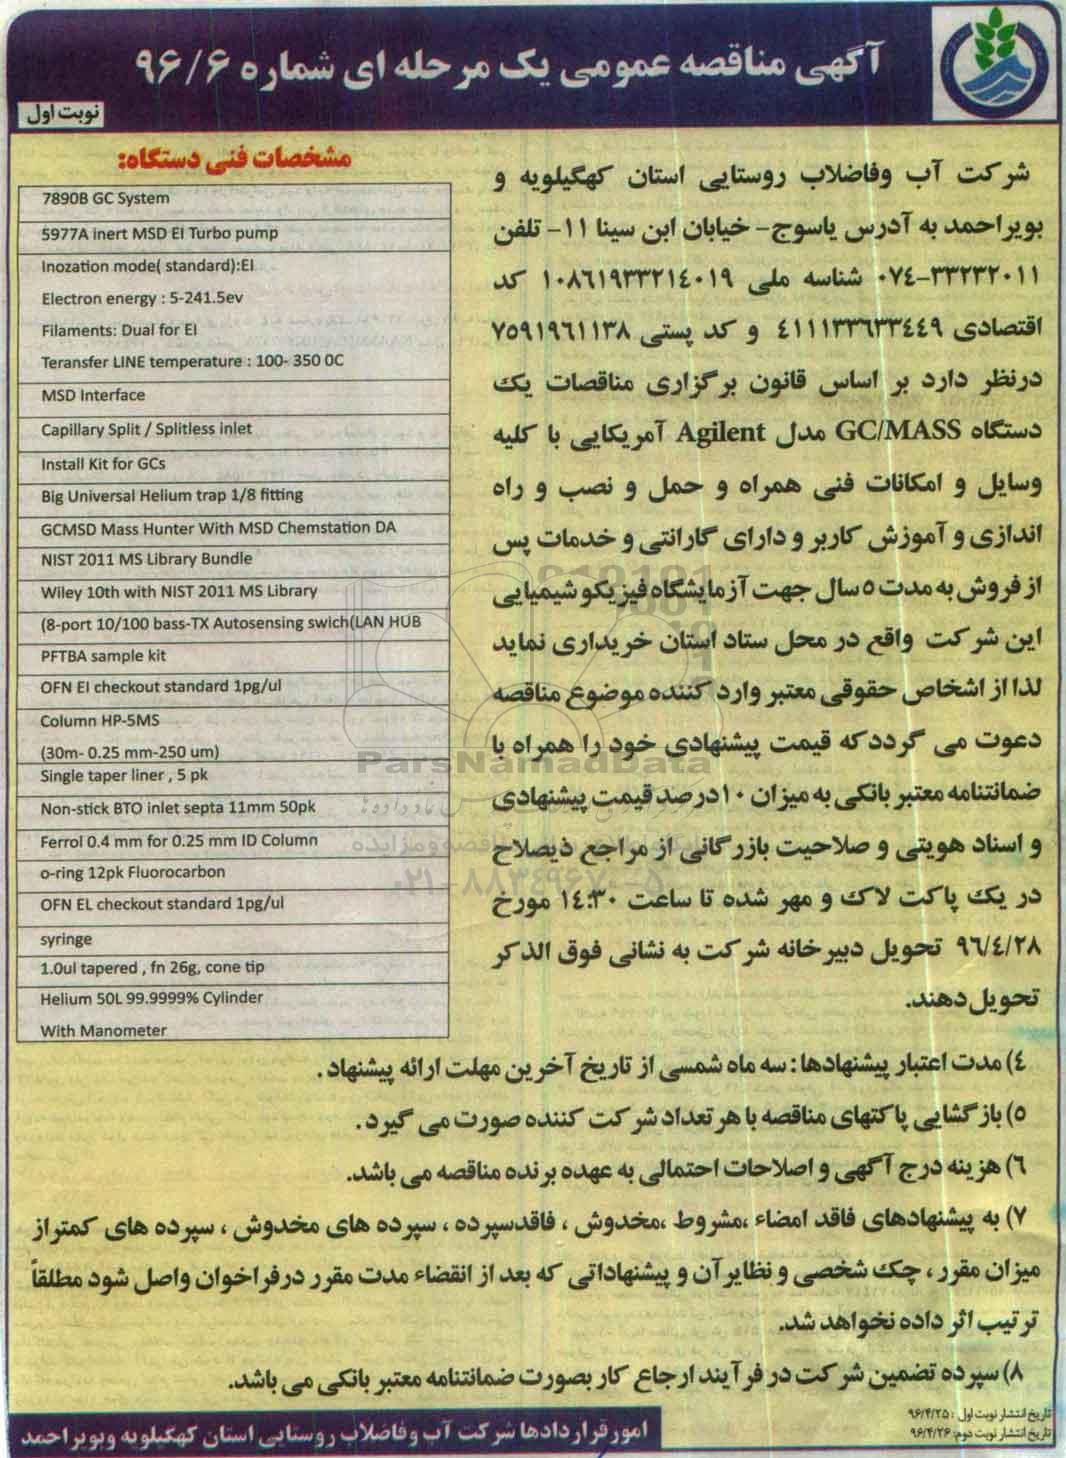 آگهی مناقصه عمومی یک مرحله ای شماره ۹۶/۶
نوبت اول
شرکت آب وفاضلاب روستایی استان کهگیلویه و
بویراحمد به آدرس یاسوج- خیابان ابن سینا ۱۱- تلفن
۰۷۴-۳۳۲۳۲۰۱۱ شناسه ملی ۱۰۸۶۱۹۳۳۲۱٤۰۱۹ کد
اقتصادی ٤۱۱۱۳۳٦۳۳٤٤۹ و کد پستی ۷۵۹۱۹٦۱۱۳۸
درنظر دارد بر اساس قانون برگزاری مناقصات یک
دستگاه GC/MASS مدل Agilent آمریکایی با کلیه
وسایل و امکانات فنی همراه و حمل و نصب و راه
اندازی و آموزش کاربر و دارای گارانتی و خدمات پس
از فروش به مدت ٥ سال جهت آزمایشگاه فیزیکو شیمیایی
این شرکت واقع در محل ستاد استان خریداری نماید
لذا از اشخاص حقوقی معتبر وارد کننده موضوع مناقصه
دعوت می گردد که قیمت پیشنهادی خود را همراه با
ضمانتنامه معتبر بانکی به میزان ۱۰درصد قیمت پیشنهادی
و اسناد هویتی و صلاحیت بازرگانی از مراجع ذیصلاح
در یک پاکت لاک و مهر شده تا ساعت ۱٤:۳۰ مورخ
۹٦/٤/۲۸ تحویل دبیرخانه شرکت به نشانی فوق الذکر
تحویل دهند.
مشخصات فنی دستگاه:
7890B GC System
5977A inert MSD EI Turbo pump
Inozation mode( standard):EI
Electron energy : 5-241.5ev
Filaments: Dual for EI
Teransfer LINE temperature : 100- 350 0C
MSD Interface
Capillary Split / Splitless inlet
Install Kit for GCs
Big Universal Helium trap 1/8 fitting
GCMSD Mass Hunter With MSD Chemstation DA
NIST 2011 MS Library Bundle
Wiley 10th with NIST 2011 MS Library
(8-port 10/100 bass-TX Autosensing swich(LAN HUB
PFTBA sample kit
OFN EI checkout standard 1pg/ul
Column HP-5MS
(30m- 0.25 mm-250 um)
Single taper liner , 5 pk
Non-stick BTO inlet septa 11mm 50pk
Ferrol 0.4 mm for 0.25 mm ID Column
o-ring 12pk Fluorocarbon
OFN EL checkout standard 1pg/ul
syringe
1.0ul tapered , fn 26g, cone tip
Helium 50L 99.9999% Cylinder
With Manometer
ParsNamadData
۰۲۱-۸۸۳۴۹۶۷۰-۵
٤) مدت اعتبار پیشنهادها : سه ماه شمسی از تاریخ آخرین مهلت ارائه پیشنهاد .
٥) بازگشایی پاکتهای مناقصه با هر تعداد شرکت کننده صورت می گیرد .
٦) هزینه درج آگهی و اصلاحات احتمالی به عهده برنده مناقصه می باشد.
۷) به پیشنهادهای فاقد امضاء ،مشروط ،مخدوش ، فاقدسپرده ، سپرده های مخدوش ، سپرده های کمتراز
میزان مقرر ، چک شخصی و نظایرآن و پیشنهاداتی که بعد از انقضاء مدت مقرر درفراخوان واصل شود مطلقاً
ترتیب اثر داده نخواهد شد.
۸) سپرده تضمین شرکت در فرآیند ارجاع کار بصورت ضمانتنامه معتبر بانکی می باشد.
تاریخ انتشار نوبت اول : ۹۶/۴/۲۵
تاریخ انتشار نوبت دوم: ۹۶/۴/۲۶
امور قراردادها شرکت آب و فاضلاب روستایی استان کهگیلویه وبویراحمد